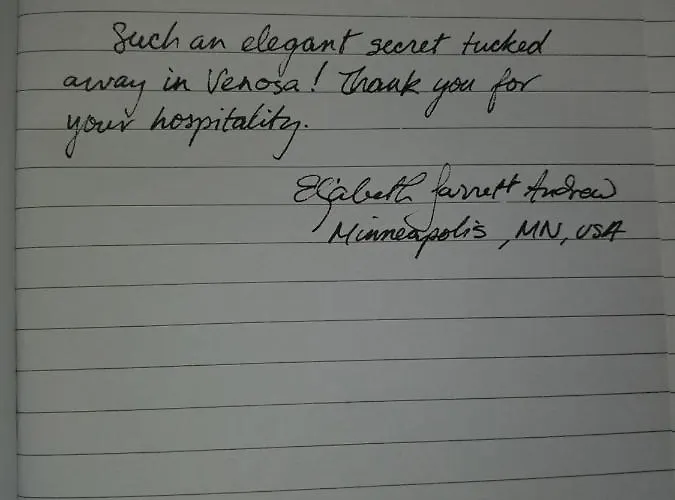 Such an elegant secret tucked
away in Venosa! Thank you for
your hospitality.
Elizabeth Jarrett Andrew
Minneapolis, MN, USA